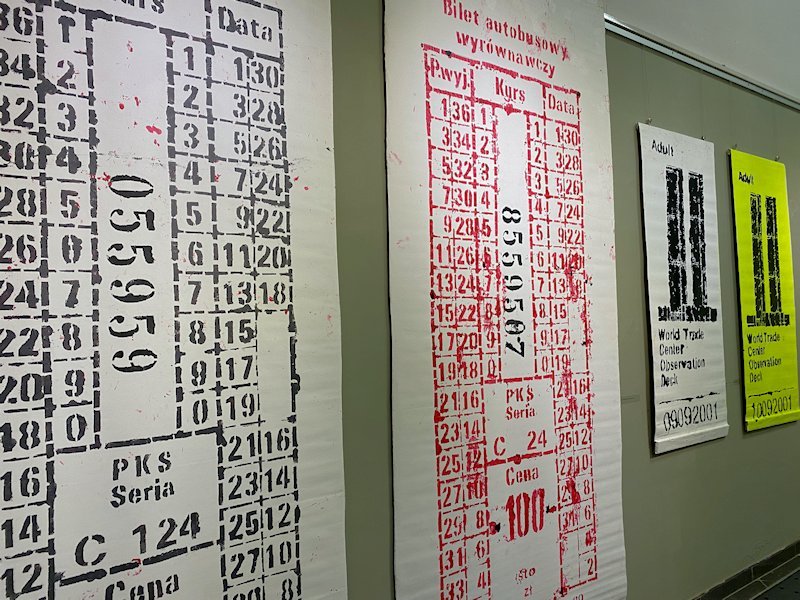 Kurs Data
36 1 1 1 30
34 2 2 3 28
32 3 3 5 26
30 4 4 7 24
28 5 5 9 22
26 6 6 11 20
24 7 7 13 18
22 8 8 15
20 9 9 17
18 0 0 19
055959
16 PKS 21 16
14 Seria 23 14
12 C 124 25 12
Cena 27 10
8
Bilet autobusowy
wyrównawczy
P.wyj. Kurs Data
1 36 1 1 1 30
3 34 2 2 3 28
5 32 3 3 5 26
7 30 4 4 7 24
9 28 5 5 9 22
11 26 6 6 11 20
13 24 7 7 13 18
15 22 8 8 15
17 20 9 9 17
19 18 0 0 19
8559507
21 16 PKS 21 16
23 14 Seria 23 14
25 12 C 24 25 12
27 10 Cena 27 10
29 8 100 29 8
31 6
33 4 (sto 2
zł
Adult
World Trade
Center
Observation
Deck
09092001
Adult
World Trade
Center
Observation
Deck
10092001